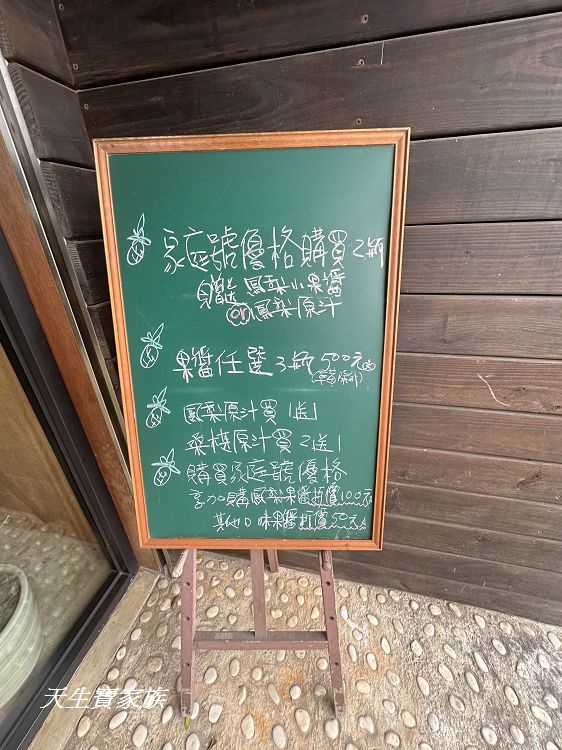 家庭號優格購買2瓶
贈送鳳梨小果醬
or鳳梨原汁
果醬任選3瓶500元
(草莓除外)
鳳梨原汁買1送1
桑椹原汁買2送1
購買家庭號優格
享加購鳳梨果醬折價100元
其他口味果醬折價50元
天生寶家族